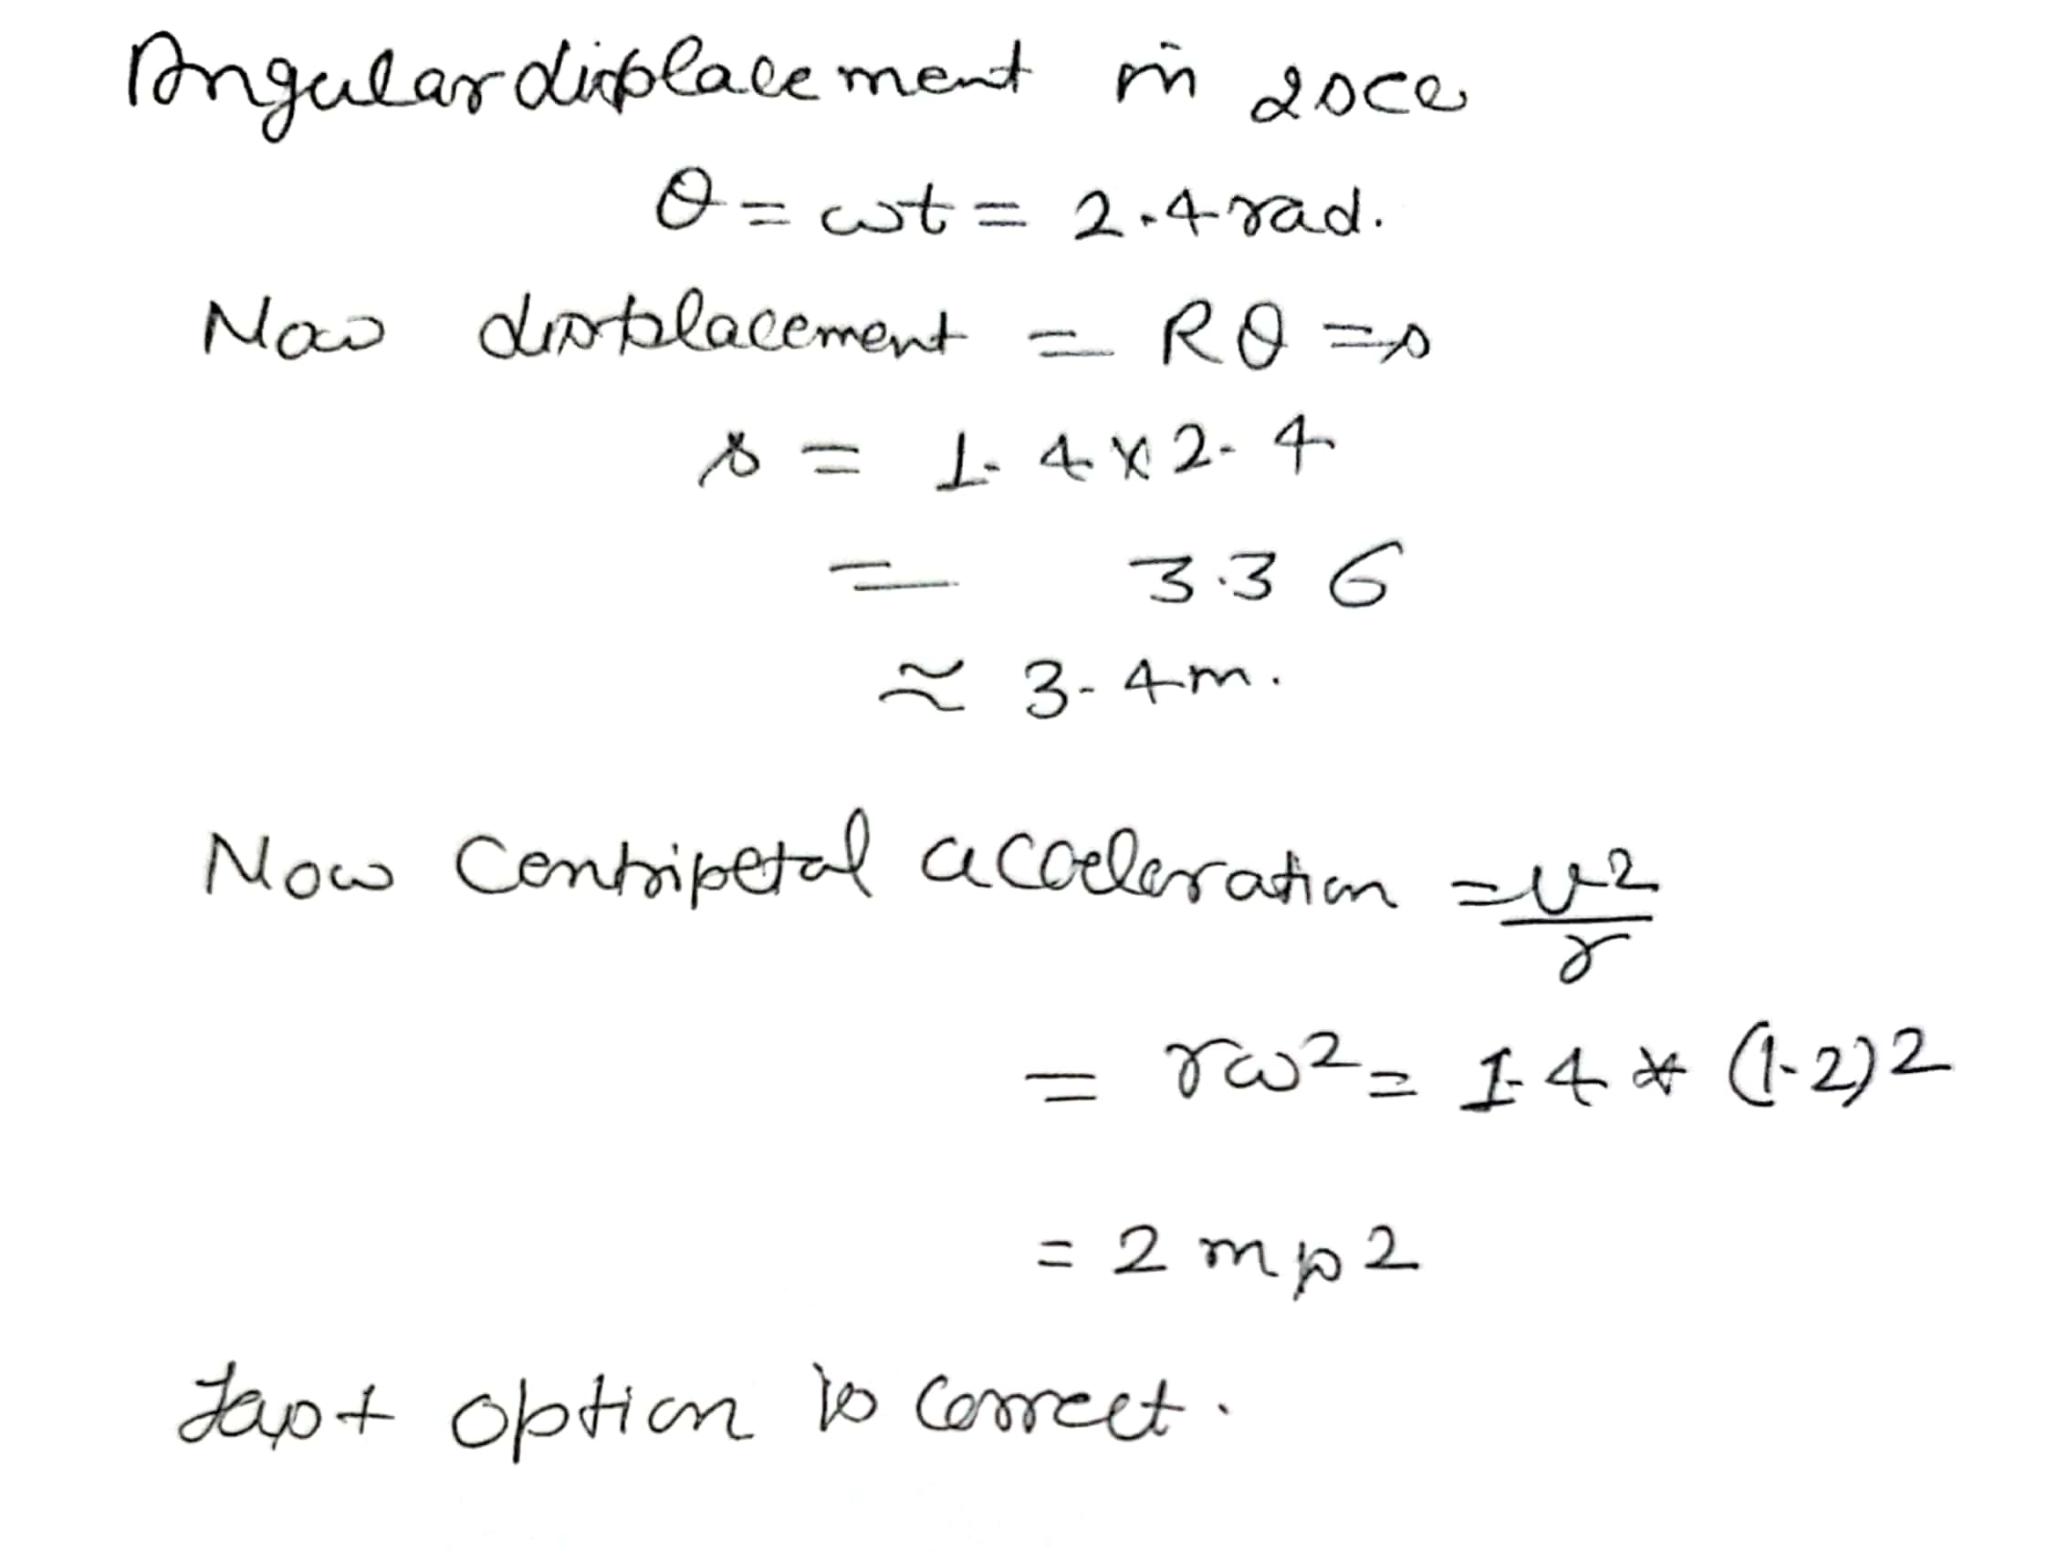 Angular displacement in 2sec
θ = ωt = 2.4 rad.
Now displacement = Rθ = s
s = 1.4 x 2.4
= 3.36
≈ 3.4m.
Now Centripetal acceleration = v²/r
= rω² = 1.4 * (1.2)2
= 2 mps2
Last option is correct.